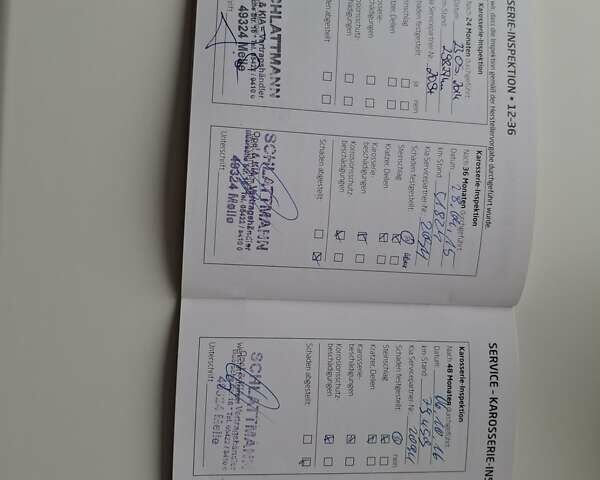 SERIE-INSPEKTION • 12-36
wir, dass die Inspektion gemäß der Herstellervorgabe durchgeführt wurde.
Karosserie-Inspektion
Nach 24 Monaten durchgeführt
Datum:
km-Stand:
Kia Servicepartner-Nr.:
Schäden festgestellt: ja nein
Steinschlag
Kratzer, Dellen
Karosserie-
beschädigungen
Korrosionsschutz-
beschädigungen
Schäden abgestellt:
SCHLATTMANN
Opel & KIA - Vertragshändler
49324 Melle
Karosserie-Inspektion
Nach 36 Monaten durchgeführt
Datum:
km-Stand:
Kia Servicepartner-Nr.: 2094
Schäden festgestellt:
Steinschlag
Kratzer, Dellen
Karosserie-
beschädigungen
Korrosionsschutz-
beschädigungen
Schäden abgestellt:
SCHLATTMANN
Opel & KIA - Vertragshändler
Tel. 05422 / 9410 0
49324 Melle
Unterschrift
SERVICE - KAROSSERIE-INS
Karosserie-Inspektion
Nach 48 Monaten durchgeführt
Datum: 06.10.16
km-Stand:
Kia Servicepartner-Nr.: 2094
Schäden festgestellt: nein
Steinschlag
Kratzer, Dellen
Karosserie-
beschädigungen
Korrosionsschutz-
beschädigungen
Schäden abgestellt:
SCHLATTMANN
Vertragshändler
Tel. 05422 / 9410 0
49324 Melle
Unterschrift